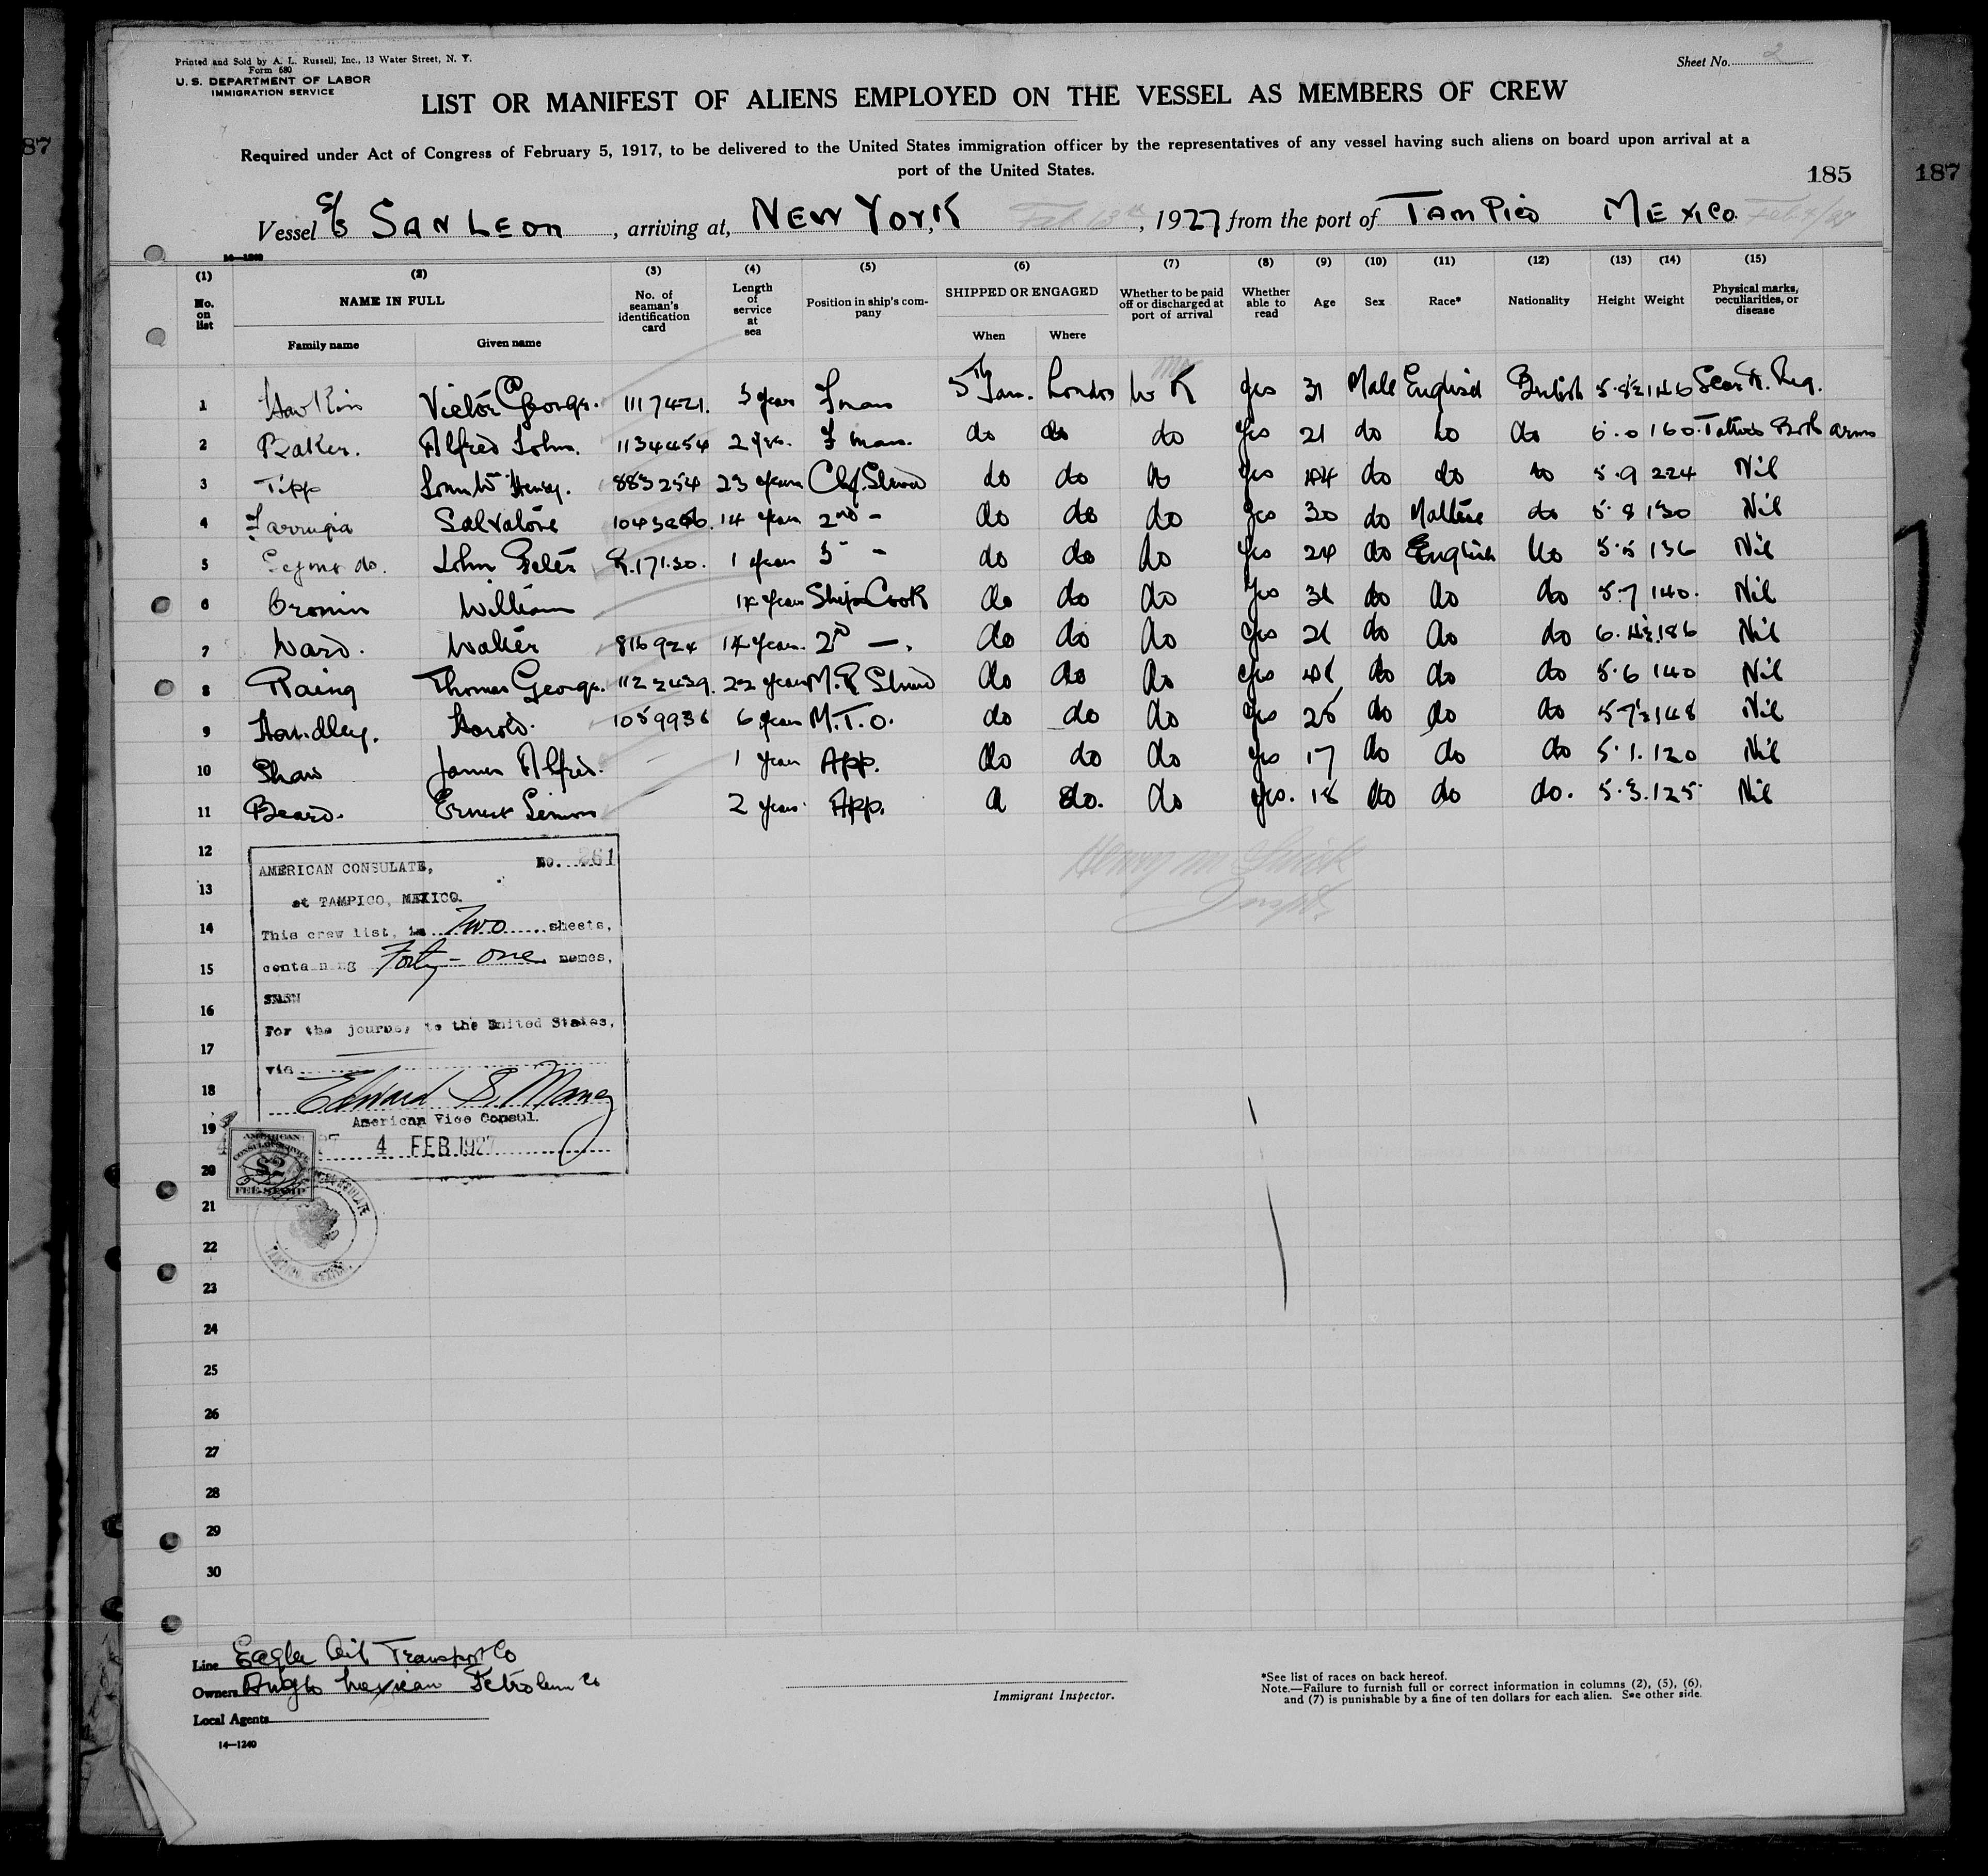 Printed and Sold by A. L. Russell, Inc., 13 Water Street, N. Y.
Form 680
U. S. DEPARTMENT OF LABOR
IMMIGRATION SERVICE
Sheet No. 2
LIST OR MANIFEST OF ALIENS EMPLOYED ON THE VESSEL AS MEMBERS OF CREW
Required under Act of Congress of February 5, 1917, to be delivered to the United States immigration officer by the representatives of any vessel having such aliens on board upon arrival at a
port of the United States.
185
187
87
Vessel S/S SAN LEON, arriving at, NEW YORK Feb 13th, 1927 from the port of TAMPICO MEXICO Feb 4/27
14—1240
(1) (2) (3) (4) (5) (6) (7) (8) (9) (10) (11) (12) (13) (14) (15)
No. on list NAME IN FULL Family name Given name No. of seaman's identification card Length of service at sea Position in ship's company SHIPPED OR ENGAGED When Where Whether to be paid off or discharged at port of arrival Whether able to read Age Sex Race* Nationality Height Weight Physical marks, peculiarities, or disease
1 Hawkins Victor George. 1117421. 3 years Fman 5th Jan. London Yes 31 Male English British 5.8½ 146 Scar R.
2 Baker. Alfred John. 1134454 2 yrs. F man. do do do Yes 21 do do do 6.0 160. Tattoos Both arms
3 Tipp John Wm Henry. 883254 23 years Chf. Steward do do do Yes 44 do do do 5.9 224 Nil
4 Farrugia Salvatore 14 years 2nd - do do do Yes 30 do Maltese do 5.8 130 Nil
5 John Peter R.17130. 1 year 3 - - do do do Yes 24 do English do 5.5 136 Nil
6 Cronin William 14 years Ships Cook do do do Yes do do do 5.7 140. Nil
7 Ward. Walter 816924 14 years. 2nd —. do do do Yes do do do 6. 186 Nil
8 Raing Thomas George. 1122439. 22 years M.R. Steward do do do Yes do do do 5.6 140 Nil
9 Handley. Harold. 1059936 6 years M.T.O. do do do Yes 26 do do do 5 7½ 148 Nil
10 Shaw James Alfred. 1 year App. do do do Yes 17 do do do 5.1. 120 Nil
11 Beard. Ernest Simon 2 years. App. do. do Yes. 18 do do do. 5.3. 125. Nil
12
13
14
15
16
17
18
19
20
21
22
23
24
25
26
27
28
29
30
AMERICAN CONSULATE, No. 261
at TAMPICO, MEXICO.
This crew list, in Two sheets,
containing Forty-one names,
For the journey to the United States,
via
Edward S. Maney
American Vice Consul.
4 FEB 1927
AMERICAN
CONSULAR SERVICE
$2
FEE STAMP
TAMPICO, MEXICO.
Line Eagle Oil Transport Co
Owners Anglo Mexican Petroleum Co
Local Agents
14—1240
Immigrant Inspector.
*See list of races on back hereof.
Note.—Failure to furnish full or correct information in columns (2), (5), (6),
and (7) is punishable by a fine of ten dollars for each alien. See other side.